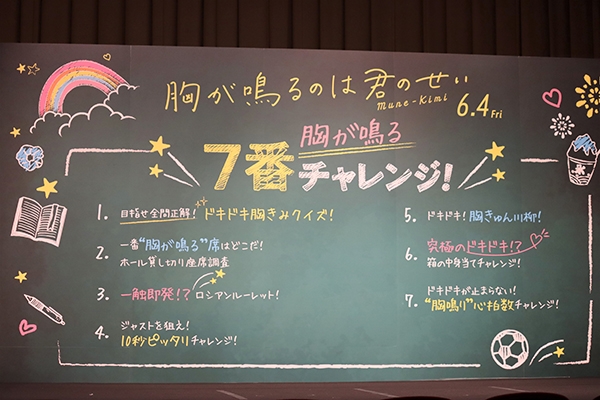 胸が鳴るのは君のせい
Mune-Kimi
6.4 Fri
胸が鳴る
7番チャレンジ!
1. 目指せ全問正解! ドキドキ胸きみクイズ!
2. 一番“胸が鳴る”席はどこだ!
ホール貸し切り座席調査
3. 一触即発!? ロシアンルーレット!
4. ジャストを狙え!
10秒ピッタリチャレンジ!
5. ドキドキ!胸きゅん川柳!
6. 究極のドキドキ!?
箱の中身当てチャレンジ!
7. ドキドキが止まらない!
“胸鳴り”心拍数チャレンジ!